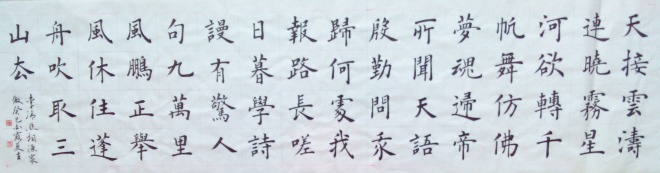 天接雲濤
連曉霧星
河欲轉千
帆舞仿佛
夢魂歸帝
所聞天語
殷勤問我
歸何處我
報路長嗟
日暮學詩
謾有驚人
句九萬里
風鵬正舉
風休住蓬
舟吹取三
山去
李清照詞漁家
傲癸巳